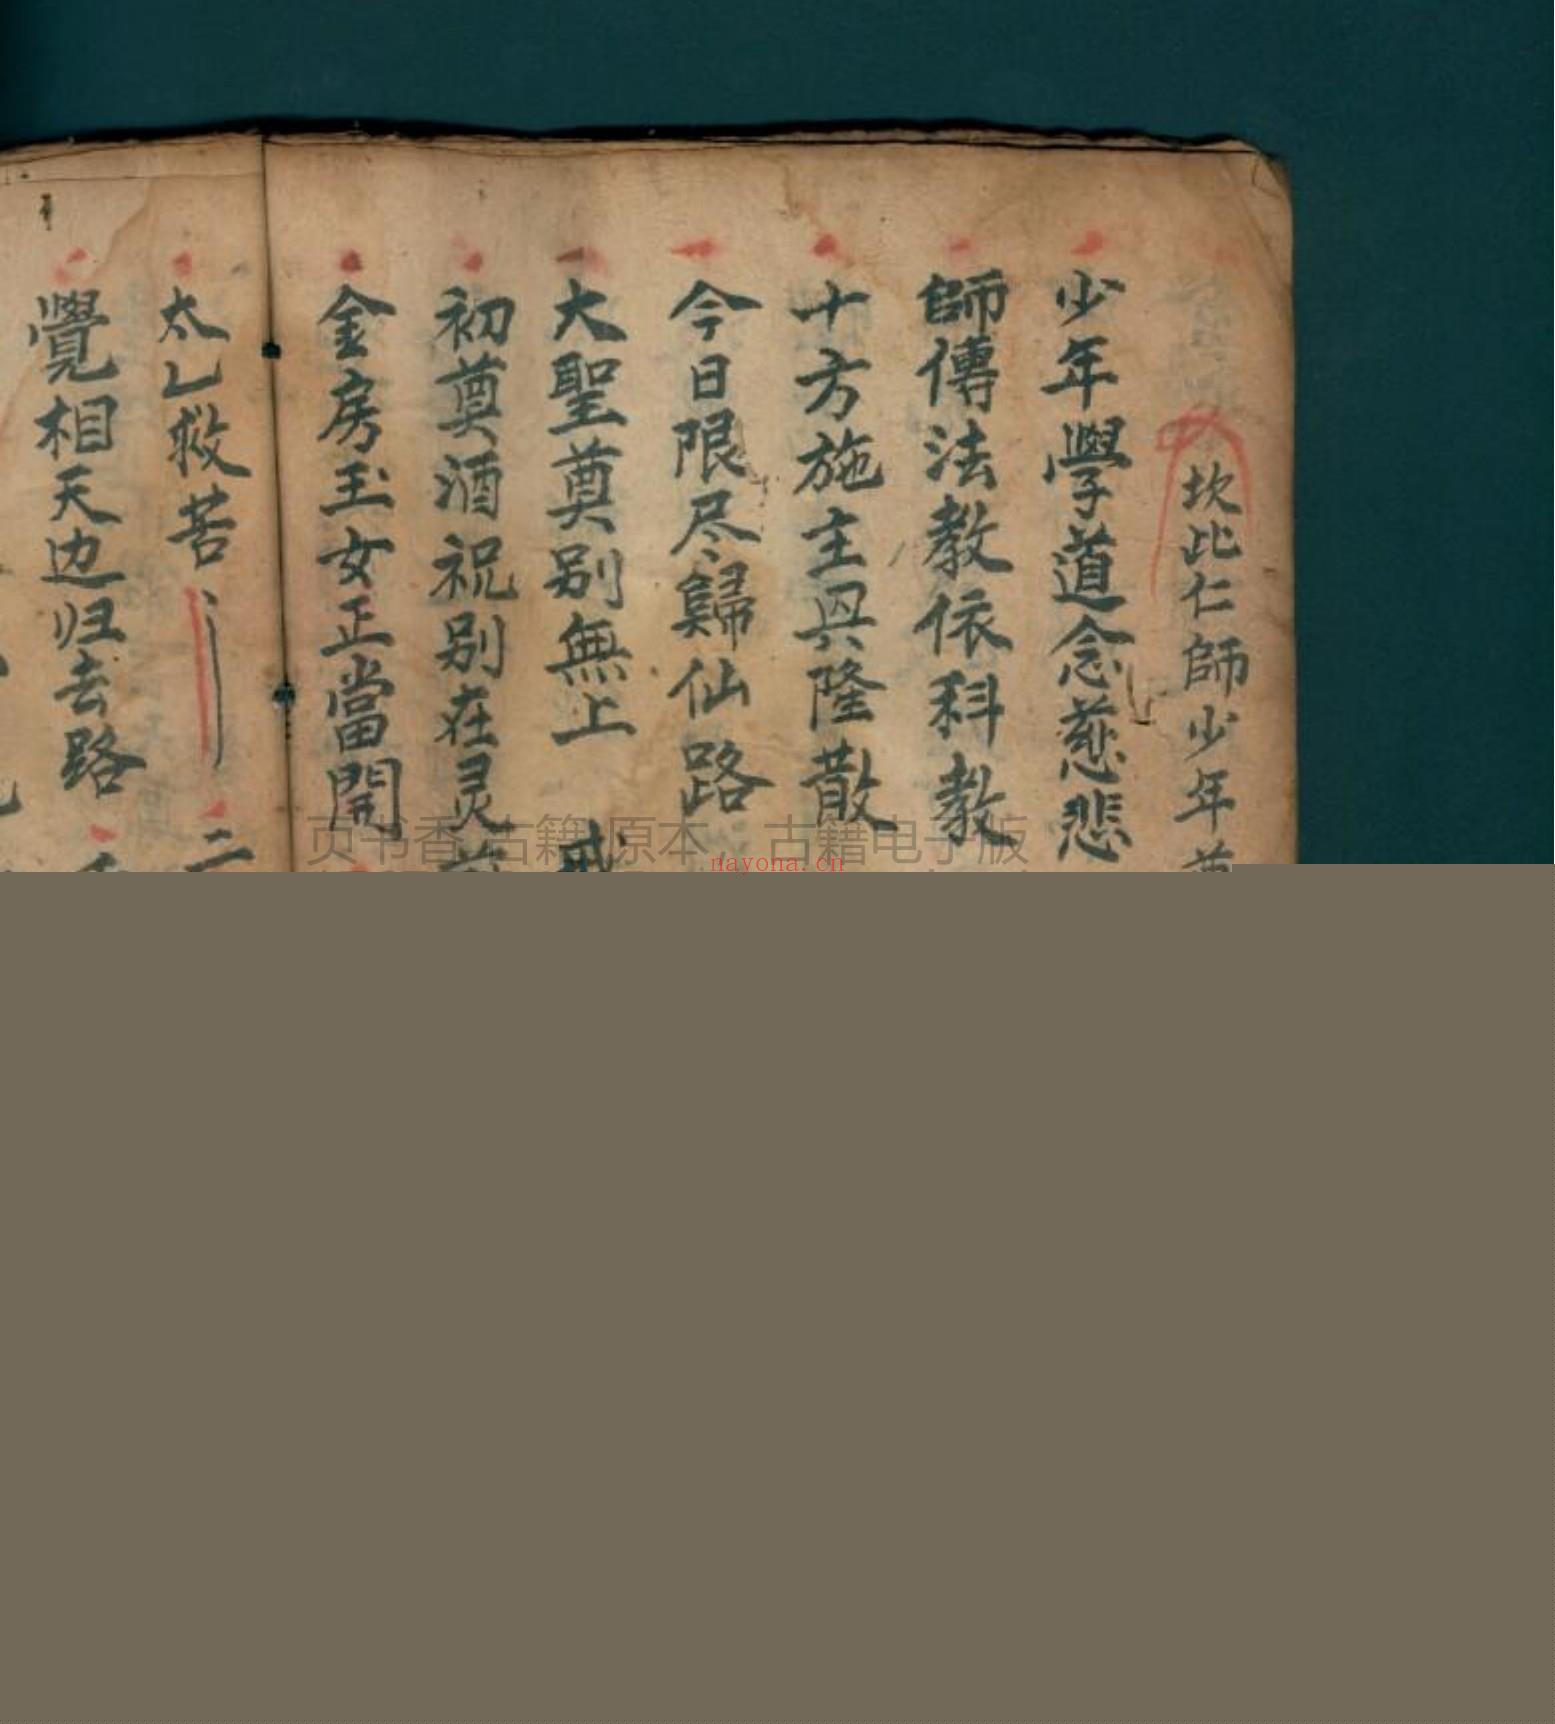 坎比仁師少年
少年學道念慈悲
師傳法教依科教
十方施主具隆散
今日限尽歸仙路
大聖奠别無上
初奠酒祝别在灵前
金房玉女正當開
太乙救苦
二
覺相天边归去路
页书香古籍原本 古籍电子版
nayona.cn